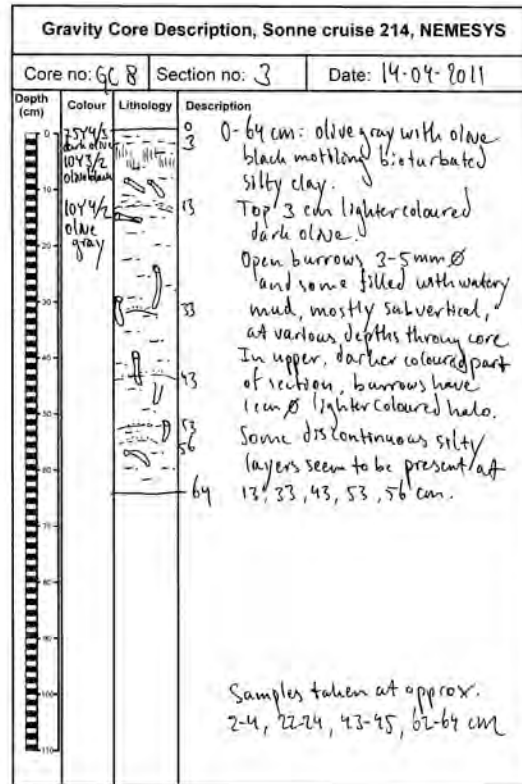 Gravity Core Description, Sonne cruise 214, NEMESYS
Core no: GC 8 Section no: 3 Date: 14-04-2011
Depth (cm) Colour Lithology Description
0
10
20
30
40
50
60
70
80
90
100
110
7.5Y4/3
dark olive
10Y3/2
olive black
10Y4/2
olive
gray
0
3
13
33
43
53
56
64
0-64 cm: olive gray with olive
black mottling bioturbated
silty clay.
Top 3 cm lighter coloured
dark olive.
Open burrows 3-5 mm Ø
and some filled with watery
mud, mostly subvertical,
at various depths throuy core
In upper, darker coloured part
of section, burrows have
1cm Ø lighter coloured halo.
Some discontinuous silty
layers seem to be present at
13, 33, 43, 53, 56 cm.
Samples taken at approx.
2-4, 22-24, 43-45, 62-64 cm